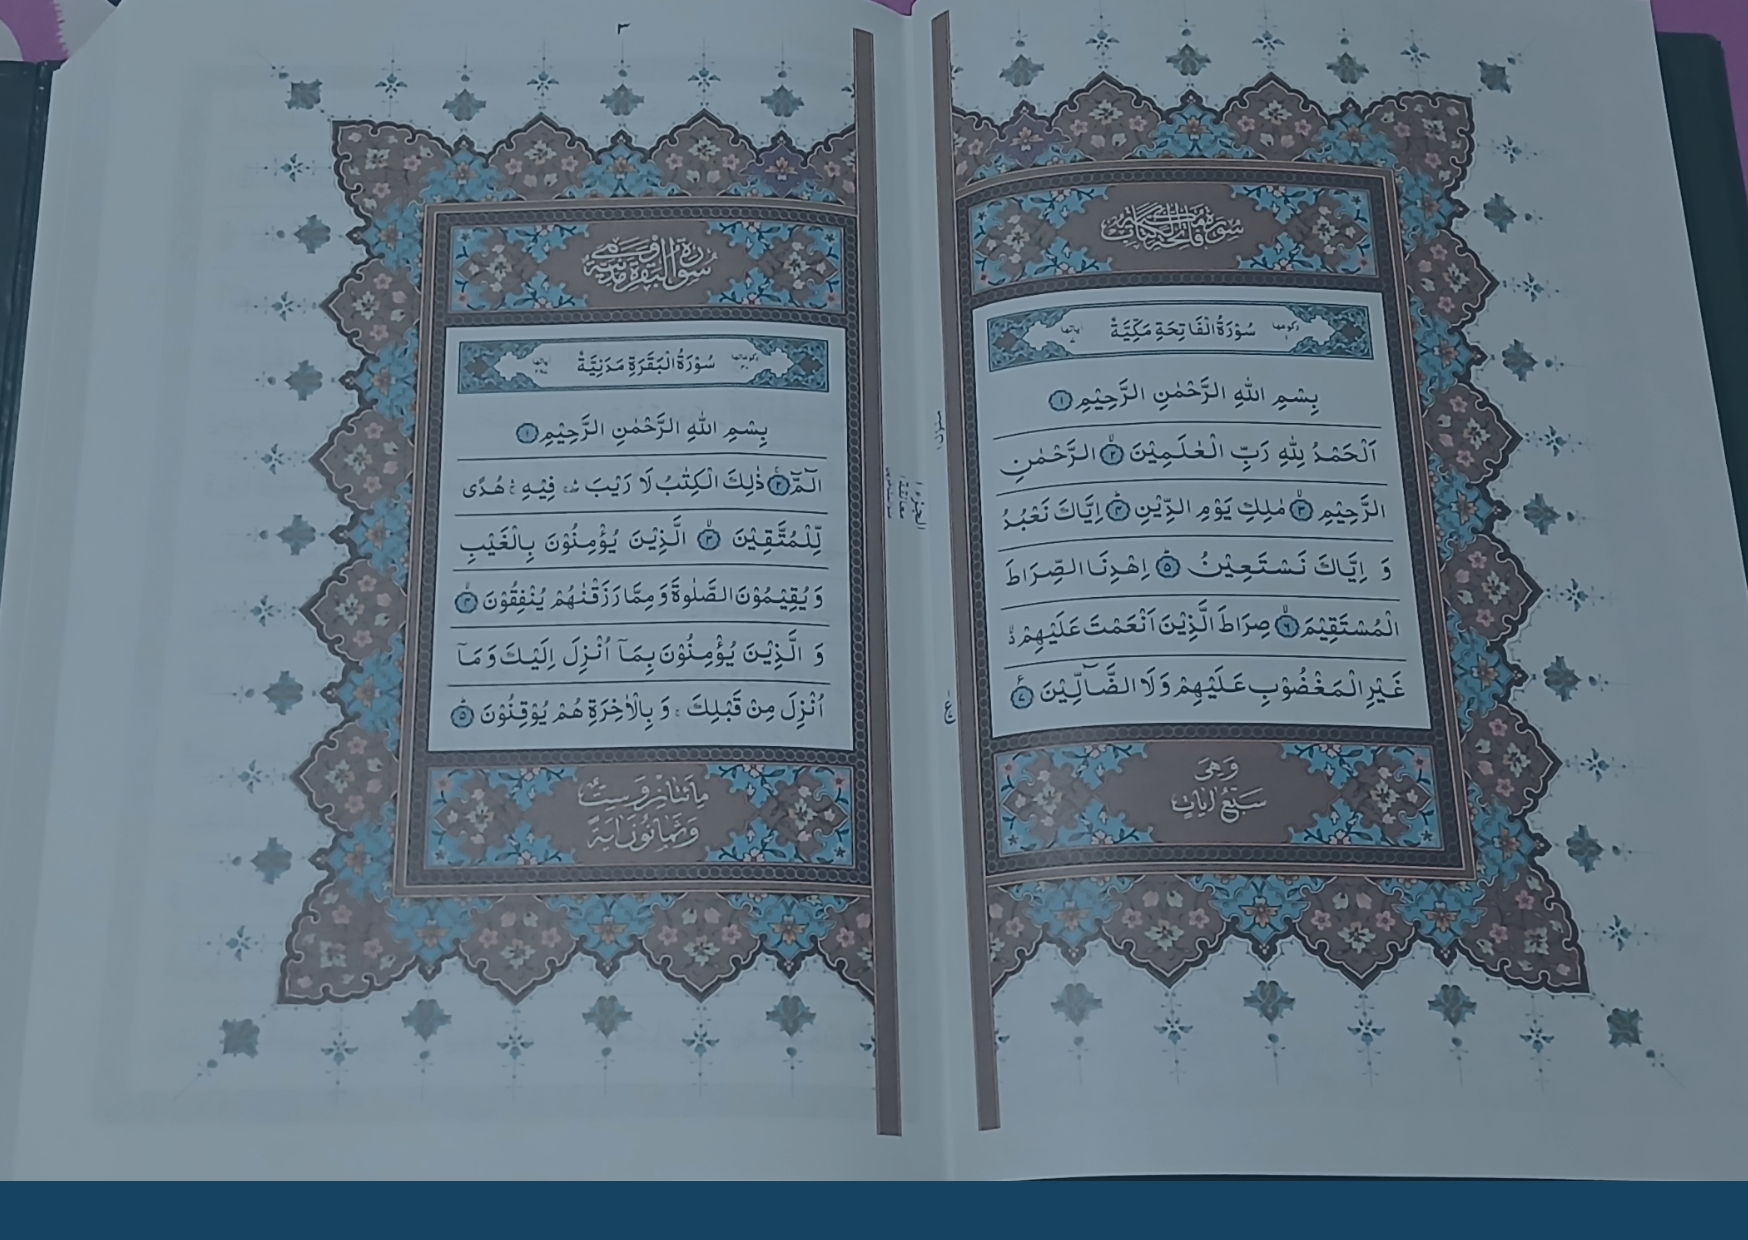 سورة فاتحة الكتاب
سُوْرَةُ الْفَاتِحَةِ مَكِّيَّةٌ
رکوعها
١
اٰیاتها
٧
بِسْمِ اللّٰهِ الرَّحْمٰنِ الرَّحِيْمِ ١
اَلْحَمْدُ لِلّٰهِ رَبِّ الْعٰلَمِيْنَ ٢ الرَّحْمٰنِ
الرَّحِيْمِ ٣ مٰلِكِ يَوْمِ الدِّيْنِ ٤ اِيَّاكَ نَعْبُدُ
وَ اِيَّاكَ نَسْتَعِيْنُ ٥ اِهْدِنَا الصِّرَاطَ
الْمُسْتَقِيْمَ ٦ صِرَاطَ الَّذِيْنَ اَنْعَمْتَ عَلَيْهِمْ
غَيْرِ الْمَغْضُوْبِ عَلَيْهِمْ وَلَا الضَّآلِّيْنَ ٧
ع
وَهِيَ
سَبْعُ اٰيَاتٍ
٣
سُورَةُ الْبَقَرَة مدنية
سُوْرَةُ الْبَقَرَةِ مَدَنِيَّةٌ
رکوعاتها
اٰیاتها
بِسْمِ اللّٰهِ الرَّحْمٰنِ الرَّحِيْمِ ١
الٓمّٓ ٢ ذٰلِكَ الْكِتٰبُ لَا رَيْبَ فِيْهِ هُدًى
لِّلْمُتَّقِيْنَ ٣ الَّذِيْنَ يُؤْمِنُوْنَ بِالْغَيْبِ
وَ يُقِيْمُوْنَ الصَّلٰوةَ وَ مِمَّا رَزَقْنٰهُمْ يُنْفِقُوْنَ ٤
وَ الَّذِيْنَ يُؤْمِنُوْنَ بِمَآ اُنْزِلَ اِلَيْكَ وَ مَآ
اُنْزِلَ مِنْ قَبْلِكَ ۚ وَ بِالْاٰخِرَةِ هُمْ يُوْقِنُوْنَ ٥
مِائتانِ وَسِتٌّ
وَثَمَانُونَ اٰيَةً
الجزء ١
معانقة ١